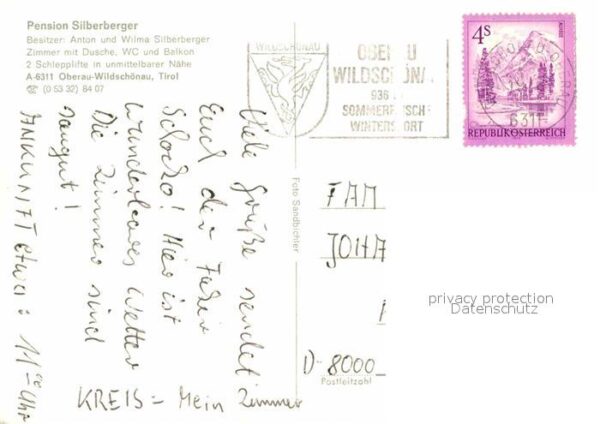 Pension Silberberger
Besitzer: Anton und Wilma Silberberger
Zimmer mit Dusche, WC und Balkon
2 Schlepplifte in unmittelbarer Nähe
A-6311 Oberau-Wildschönau, Tirol
☎ (0 53 32) 84 07
WILDSCHÖNAU
OBERAU
WILDSCHÖNA
936
SOMMERFRISCHE
WINTERSPORT
4S
REPUBLIK ÖSTERREICH
6311
Viele Grüße sendet
Euch der Fahrer
Schocko! Hier ist
wunderbares Wetter
Die Zimmer sind
saugut!
ANKUNFT etwa: 11⁰⁰-Uhr
KREIS = Mein Zimmer
Foto Sandbichler
FAM
JOHA
D-8000
Postleitzahl
privacy protection
Datenschutz